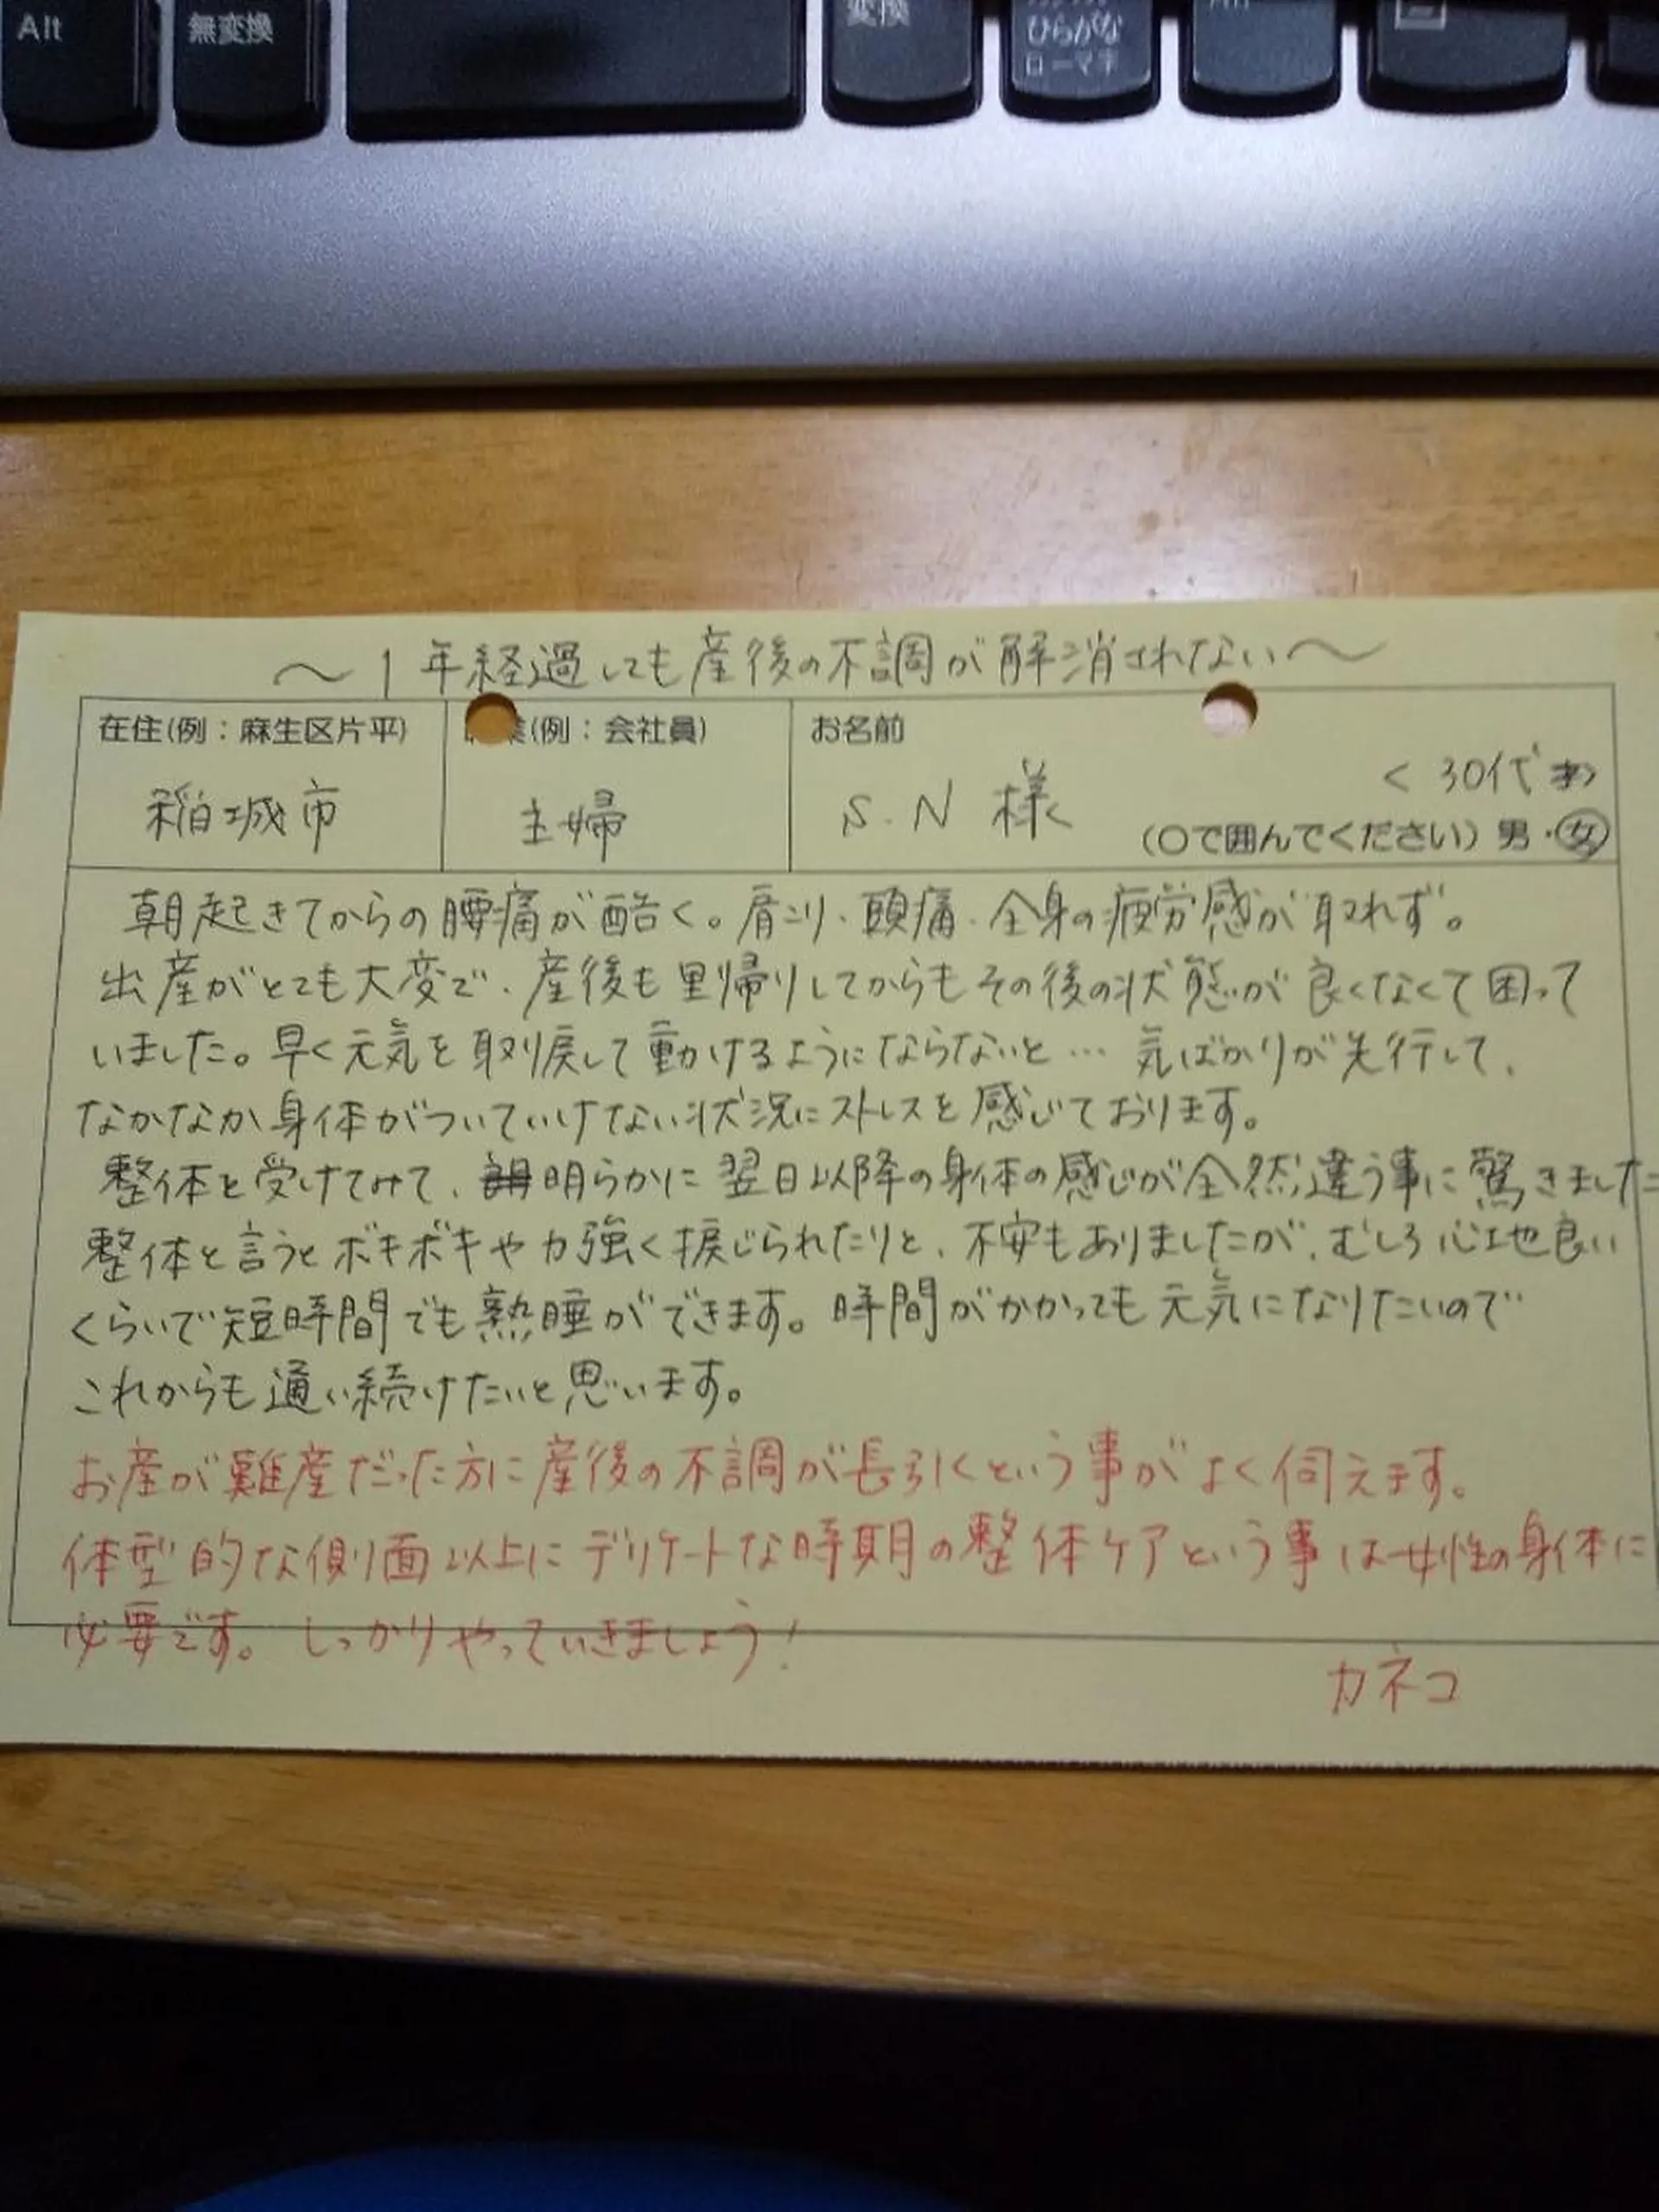 Alt
無変換
変換
ひらがな
ローマ字
～1年経過しても産後の不調が解消されない～
在住(例：麻生区片平)
業(例：会社員)
お名前
稲城市
主婦
S.N 様
< 30代
(○で囲んでください) 男・女
朝起きてからの腰痛が酷く。肩こり、頭痛、全身の疲労感が取れず。
出産がとても大変で、産後も里帰りしてからもその後の状態が良くなくて困って
いました。早く元気を取り戻して動けるようにならないと… 気ばかりが先行して、
なかなか身体がついていけない状況にストレスを感じております。
整体を受けてみて、明らかに翌日以降の身体の感じが全然違う事に驚きました
整体と言うとボキボキや力強く捩じられたりと、不安もありましたが、むしろ心地良い
くらいで短時間でも熟睡ができます。時間がかかっても元気になりたいので
これからも通い続けたいと思います。
お産が難産だった方に産後の不調が長引くという事がよく伺えます。
体型的な側面以上にデリケートな時期の整体ケアという事は女性の身体に
必要です。しっかりやっていきましょう！
カネコ